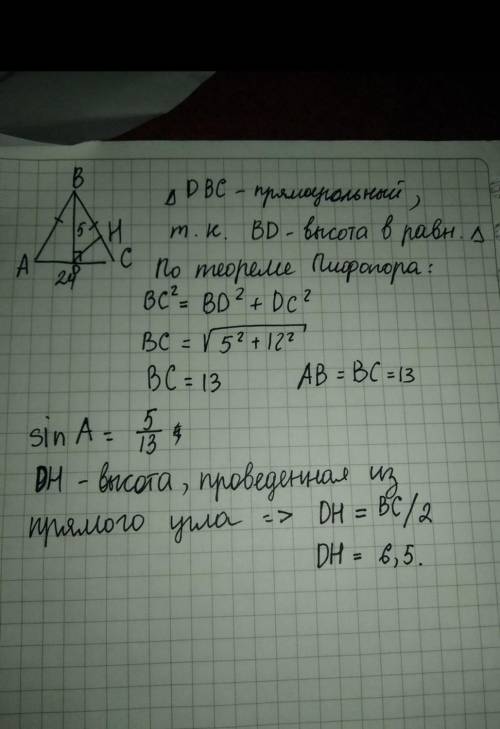 B
5
H
A
C
24
D
△ DBC - прямоугольный,
т. к. BD - высота в равн. △
По теореме Пифогора:
BC² = BD² + DC²
BC = √5² + 12²
BC = 13 AB = BC = 13
sin A = 5/13
DH - высота, проведенная из
прямого угла => DH = BC/2
DH = 6,5.